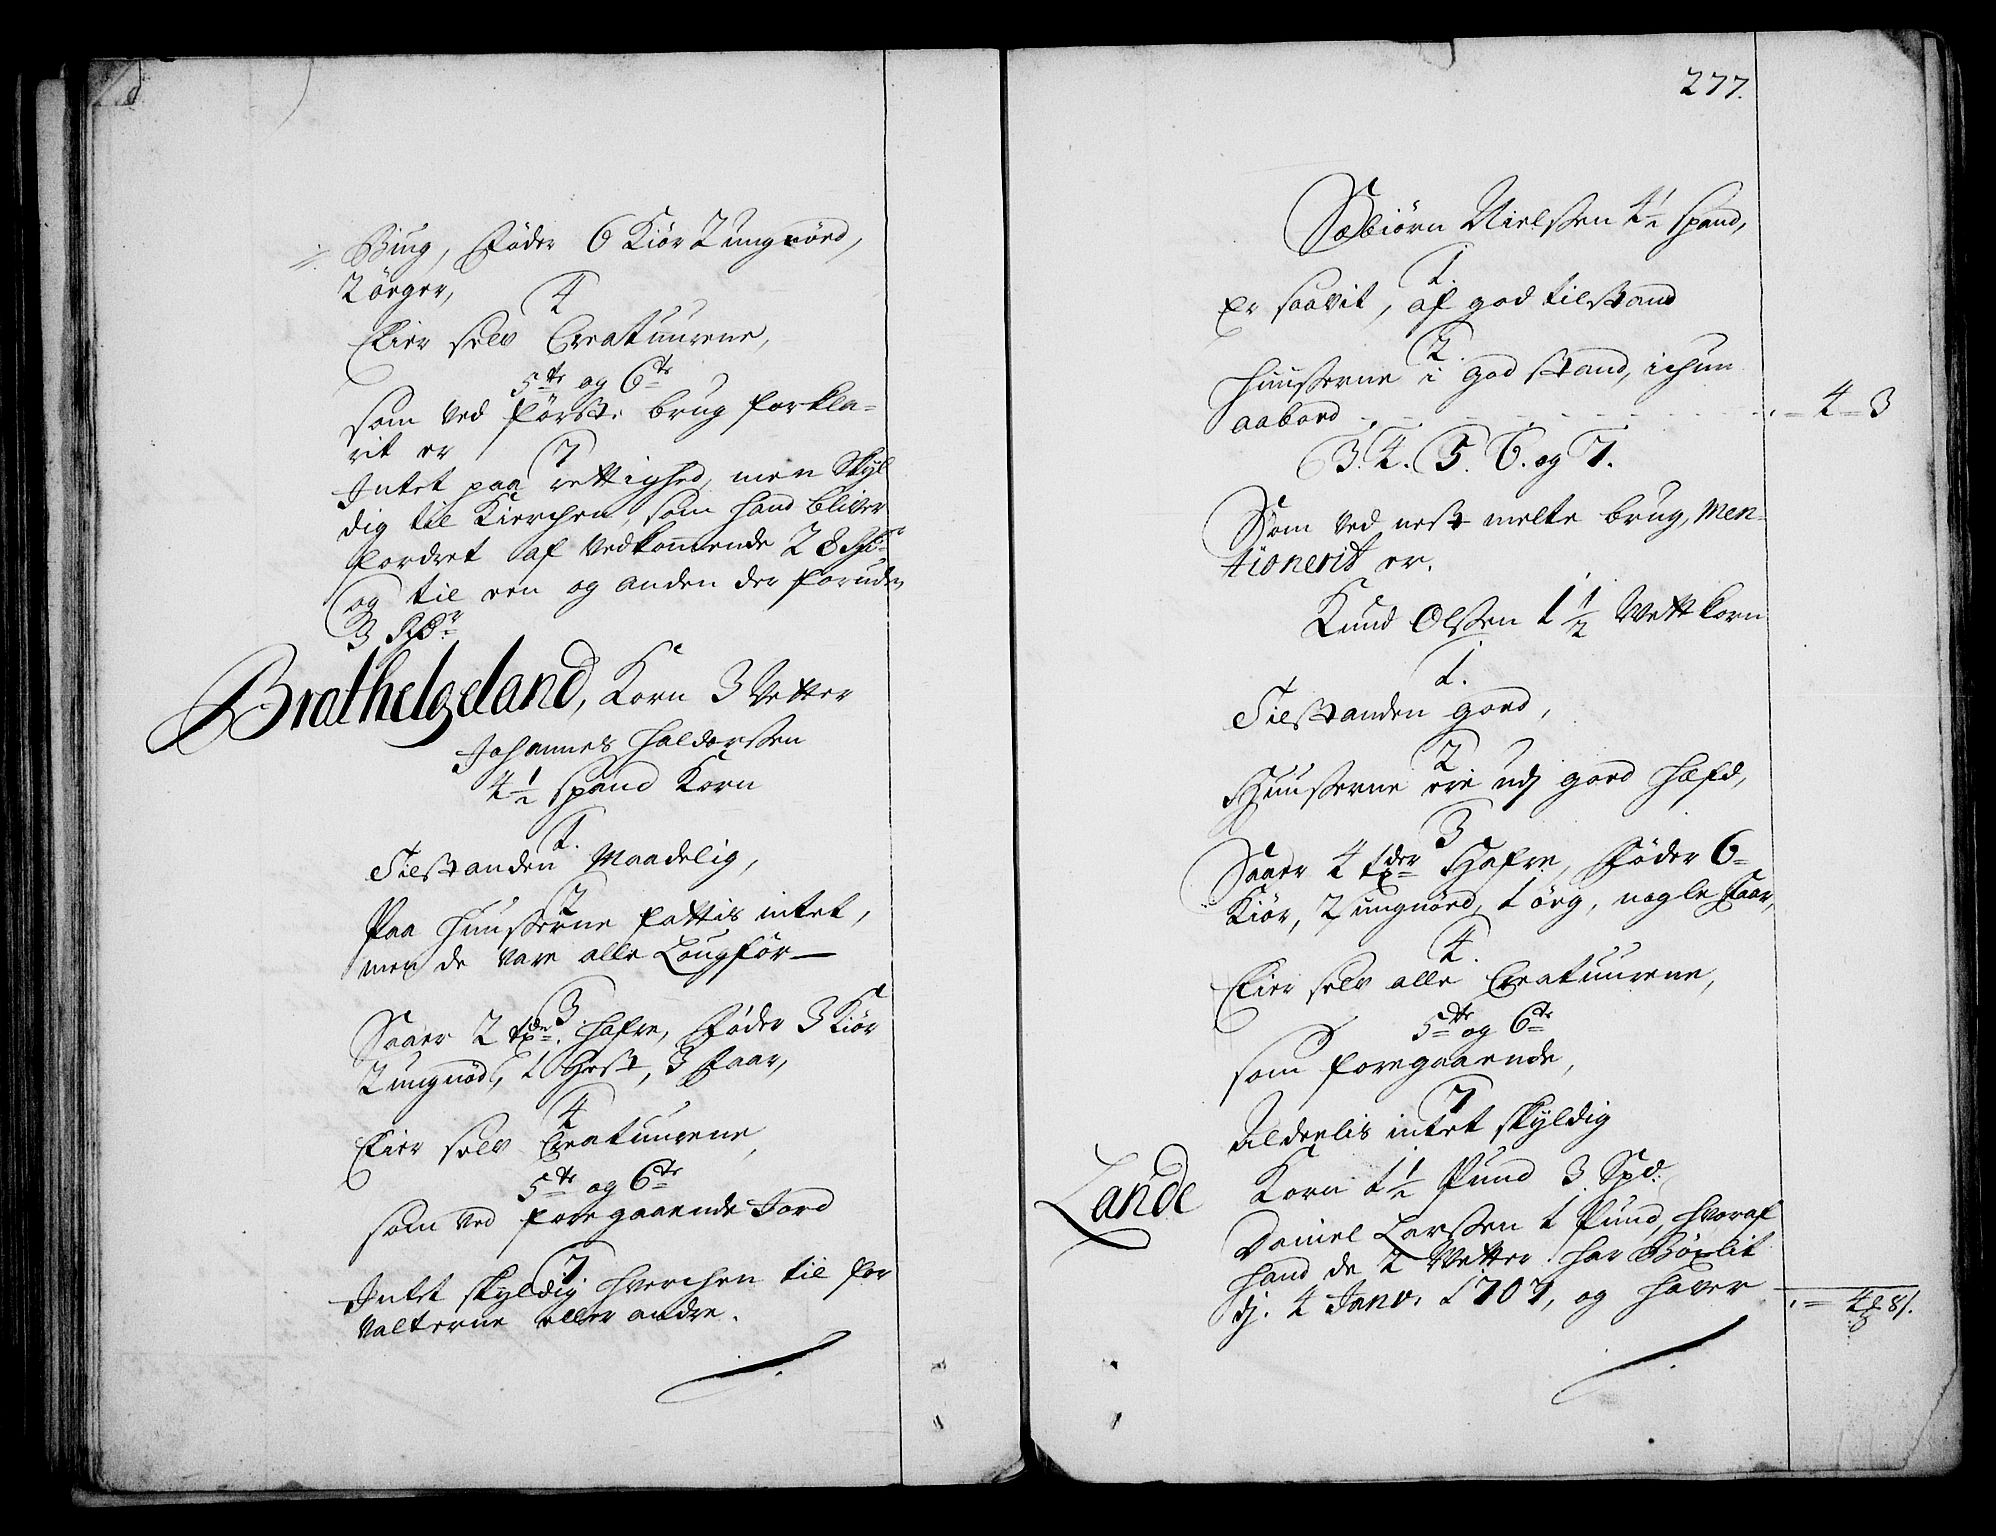 Biug, føder 6 Kiør 2 ungnöed,
2 öeger,
4
Eier selv Creatuurene,
5te og 6te
som ved först: brug forkla-
rit er
7
Intet paa rettighed, men skyl
dig til Kierchen, som hand bliver
fordret af vedkommende 28
og til een og anden der foruden
3 Rdr
Brathelgeland, Korn 3 Vetter
Johannes Haldorssen
4½ spand Korn
1.
Tilstanden Maadelig,
2
Paa Huusserne fattis intet,
men de vare alle Laugför
3
Saaer 2 tdr: hafre, føder 3 Kiör
2 ungnöd, 1 Hest, 3 Faar,
4
Eier selv Creatuurene,
5te og 6te
som ved foregaaende Jord
7
Intet skyldig hverchen til for
valterne eller andre.
277.
Sæbiörn Nielssen 4½ spand,
1.
Er saavit, af god tilstand
2.
Huusserne i god stand, ichun
aabord - 4 - 3
3. 4. 5. 6. og 7.
Som ved nest melte brug, Men-
tionerit er.
Knud Olssen 1 1/2 Vett Korn
1.
Tilstanden goed,
2
Huusserne ere udj goed Hæfd,
3
Saaer 4 tdr Hafre, føder 6
Kiör, 2 ungnöed, 1 örg, nogle Faar,
4.
Eier selv alle Creatuurene,
5te og 6te
som foregaaende,
7
Alderlis intet skyldig
Lande Korn 1½ Pund 3 Spd:
Daniel Larssen 1 Pund, hvoraf
hand de 2 Vetter har Böxlit
dj. 4 Janv. 1707, og haver